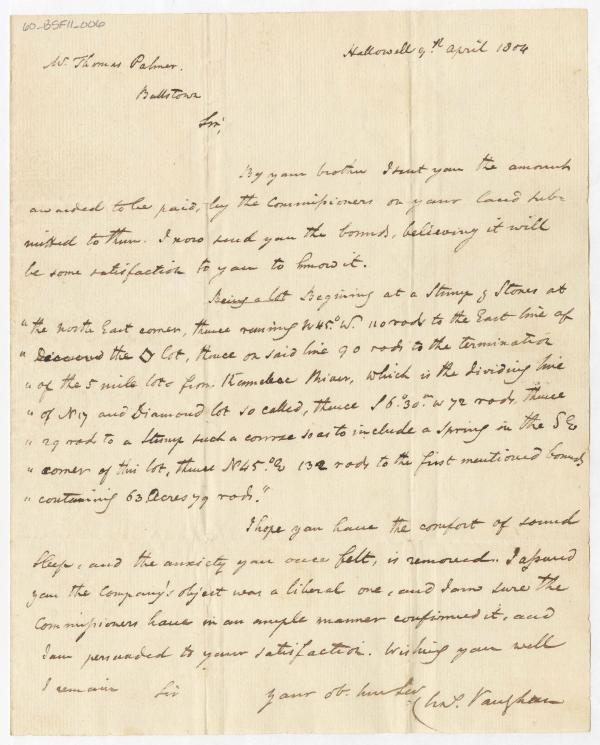 60-BSF11-006
Hallowell 9th April 1804
Mr Thomas Palmer.
Ballstown
Sir,
By your brother I sent you the amount
awarded to be paid, by the Commissioners on your land sub=
mitted to them. I now send you the bounds, believing it will
be some satisfaction to you to know it.
Being a lot Begining at a Stump & Stones at
"the North East corner, thence runing W 45.° W. 110 rods to the East line of
" the ◇ lot, thence on said line 90 rods to the termination
" of the 5 mile lots from Kennebec River, which is the dividing line
" of N 17 and Diamond lot so called, thence S 6° 30m W 72 rods. thence
" 29 rods to a Stump such a corse so as to include a Spring in the S E
" corner of this lot, thence N 45.° E 132 rods to the first mentioned bounds
" containing 63 Acres 79 rods."
I hope you have the comfort of sound
sleep, and the anxiety you once felt, is removed. I assured
you the Company's object was a liberal one, and I am sure the
Commissioners have in an ample manner confirmed it, and
I am persuaded to your satisfaction. Wishing you well
I remain Sir your ob. hue Ser
Chs. Vaughan